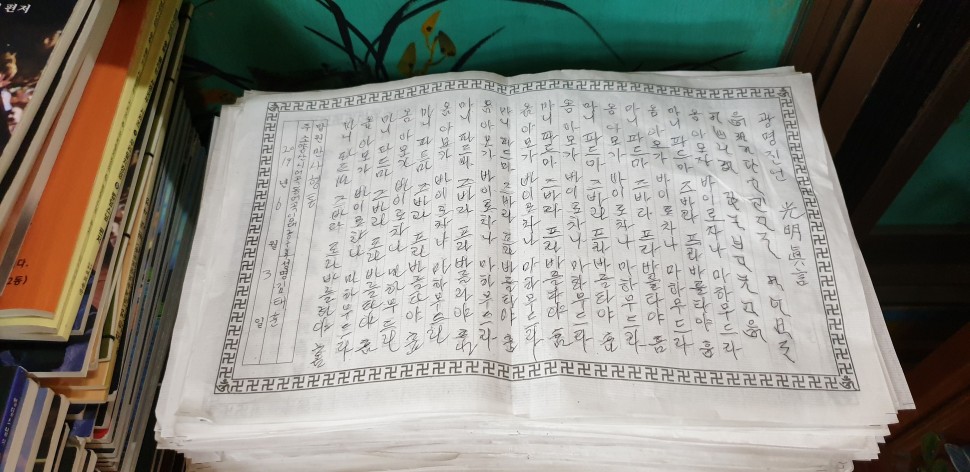 광명진언 光明眞言
옴 아모가 바이로차나 마하무드라
마니 파드마 즈바라 프라바를타야 훔
옴 아모가 바이로차나 마하무드라
마니 파드마 즈바라 프라바를타야 훔
옴 아모가 바이로차나 마하무드라
마니 파드마 즈바라 프라바를타야 훔
옴 아모가 바이로차나 마하무드라
마니 파드마 즈바라 프라바를타야 훔
옴 아모가 바이로차나 마하무드라
마니 파드마 즈바라 프라바를타야 훔
옴 아모가 바이로차나 마하무드라
마니 파드마 즈바라 프라바를타야 훔
옴 아모가 바이로차나 마하무드라
마니 파드마 즈바라 프라바를타야 훔
옴 아모가 바이로차나 마하무드라
마니 파드마 즈바라 프라바를타야 훔
옴 아모가 바이로차나 마하무드라
마니 파드마 즈바라 프라바를타야 훔
발원 만사형통
주소 성명 김태훈
2017년 6월 3일